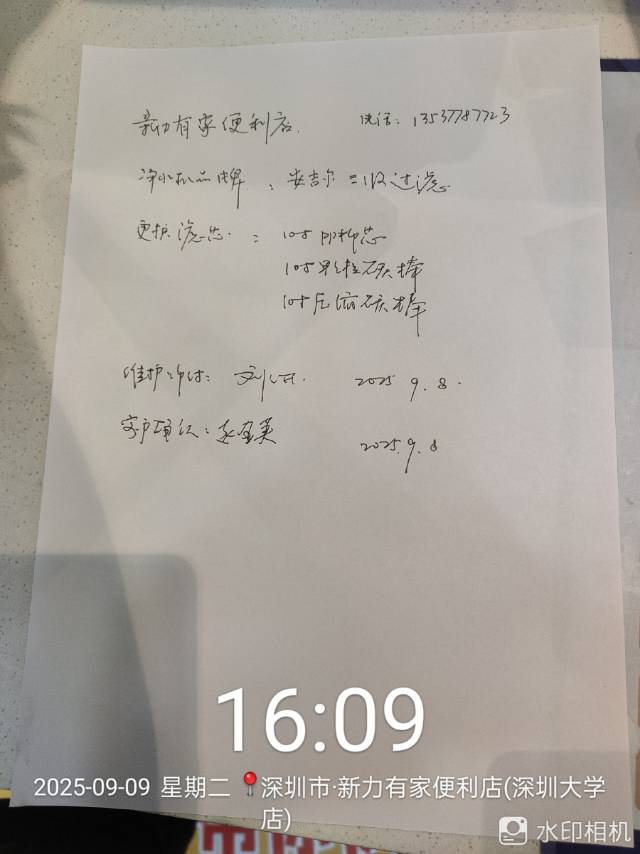 新力有家便利店 电话：13537787723
净水机品牌：安吉尔三级过滤
更换滤芯：10寸PP棉芯
10寸颗粒碳棒
10寸压缩碳棒
维护师傅：刘 2025.9.8.
客户确认：赵 英 2025.9.8
16:09
2025-09-09 星期二 深圳市·新力有家便利店(深圳大学
店)
水印相机